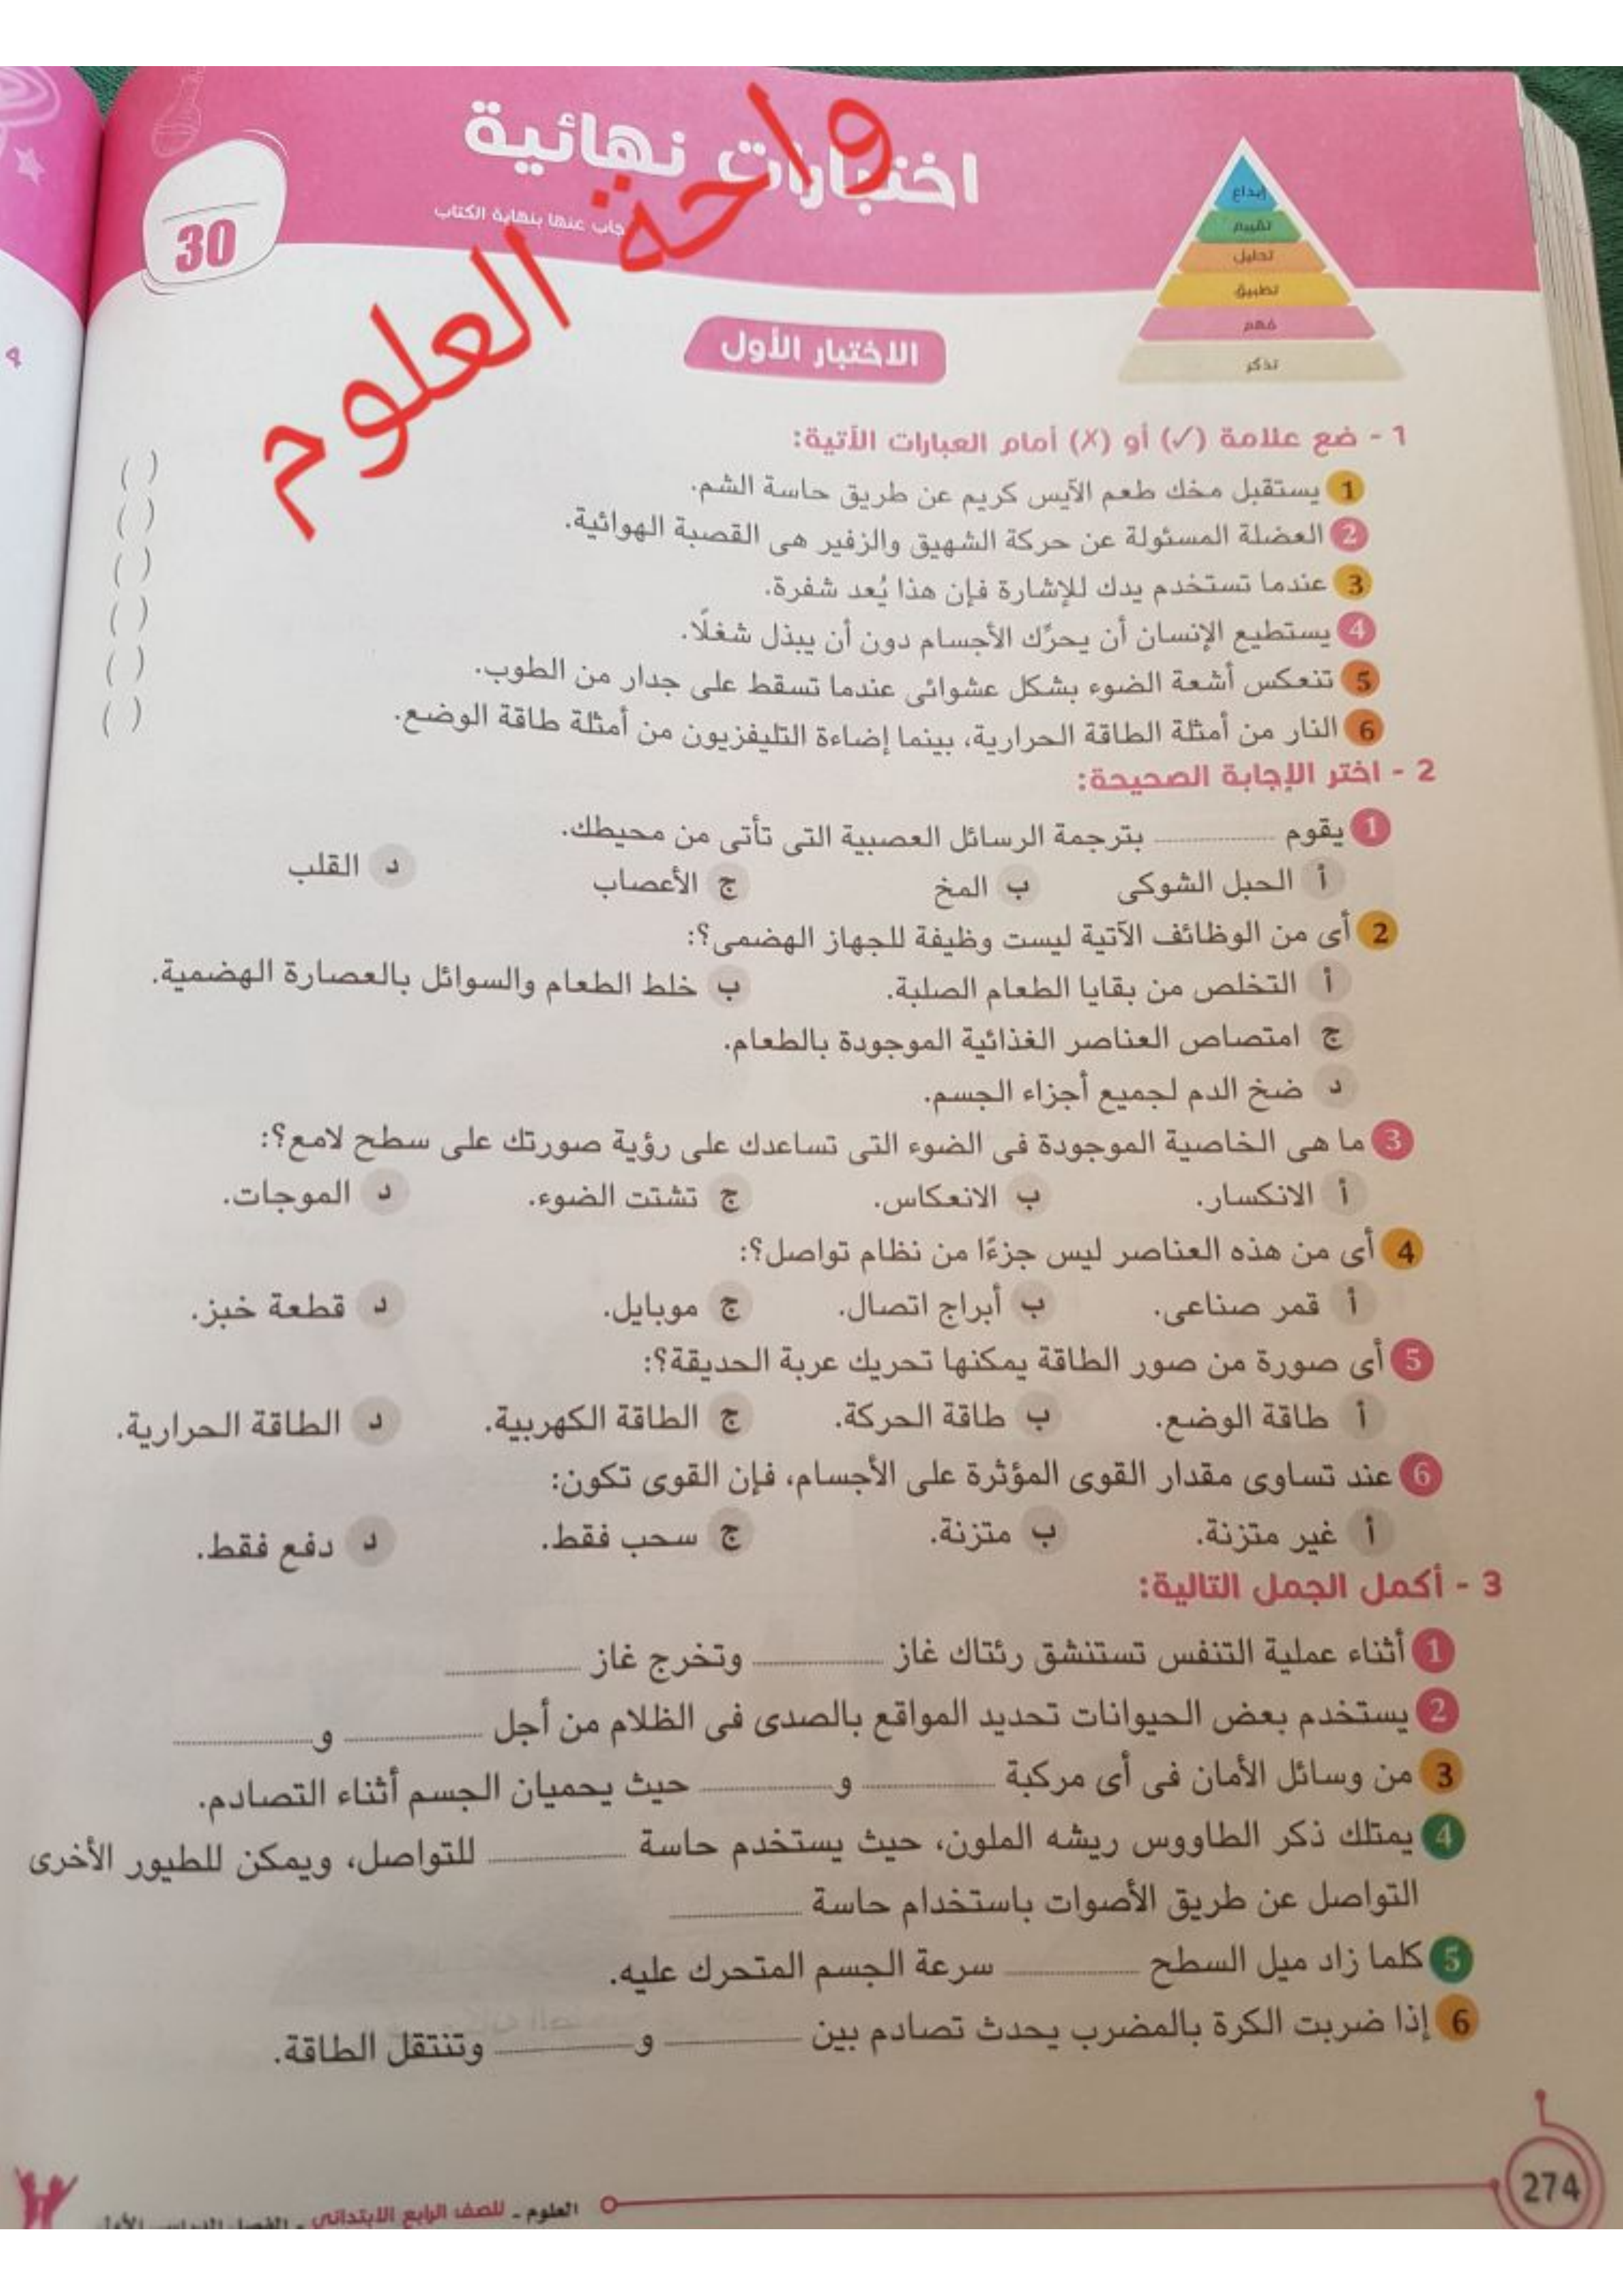 اختبارات نهائية
جاب عنها بنهاية الكتاب
واحة العلوم
30
إبداع
تقييم
تحليل
تطبيق
فهم
تذكر
الاختبار الأول
1 - ضع علامة (✓) أو (X) أمام العبارات الآتية:
1 يستقبل مخك طعم الآيس كريم عن طريق حاسة الشم. ( )
2 العضلة المسئولة عن حركة الشهيق والزفير هى القصبة الهوائية. ( )
3 عندما تستخدم يدك للإشارة فإن هذا يُعد شفرة. ( )
4 يستطيع الإنسان أن يحرِّك الأجسام دون أن يبذل شغلًا. ( )
5 تنعكس أشعة الضوء بشكل عشوائى عندما تسقط على جدار من الطوب. ( )
6 النار من أمثلة الطاقة الحرارية، بينما إضاءة التليفزيون من أمثلة طاقة الوضع. ( )
2 - اختر الإجابة الصحيحة:
1 يقوم ............ بترجمة الرسائل العصبية التى تأتى من محيطك.
أ الحبل الشوكى ب المخ ج الأعصاب د القلب
2 أى من الوظائف الآتية ليست وظيفة للجهاز الهضمى؟:
أ التخلص من بقايا الطعام الصلبة. ب خلط الطعام والسوائل بالعصارة الهضمية.
ج امتصاص العناصر الغذائية الموجودة بالطعام.
د ضخ الدم لجميع أجزاء الجسم.
3 ما هى الخاصية الموجودة فى الضوء التى تساعدك على رؤية صورتك على سطح لامع؟:
أ الانكسار. ب الانعكاس. ج تشتت الضوء. د الموجات.
4 أى من هذه العناصر ليس جزءًا من نظام تواصل؟:
أ قمر صناعى. ب أبراج اتصال. ج موبايل. د قطعة خبز.
5 أى صورة من صور الطاقة يمكنها تحريك عربة الحديقة؟:
أ طاقة الوضع. ب طاقة الحركة. ج الطاقة الكهربية. د الطاقة الحرارية.
6 عند تساوى مقدار القوى المؤثرة على الأجسام، فإن القوى تكون:
أ غير متزنة. ب متزنة. ج سحب فقط. د دفع فقط.
3 - أكمل الجمل التالية:
1 أثناء عملية التنفس تستنشق رئتاك غاز ............ وتخرج غاز ............
2 يستخدم بعض الحيوانات تحديد المواقع بالصدى فى الظلام من أجل ............ و ............
3 من وسائل الأمان فى أى مركبة ............ و ............ حيث يحميان الجسم أثناء التصادم.
4 يمتلك ذكر الطاووس ريشه الملون، حيث يستخدم حاسة ............ للتواصل، ويمكن للطيور الأخرى
التواصل عن طريق الأصوات باستخدام حاسة ............
5 كلما زاد ميل السطح ............ سرعة الجسم المتحرك عليه.
6 إذا ضربت الكرة بالمضرب يحدث تصادم بين ............ و ............ وتنتقل الطاقة.
274
العلوم ـ للصف الرابع الابتدائى ـ الفصل الدراسى الأول